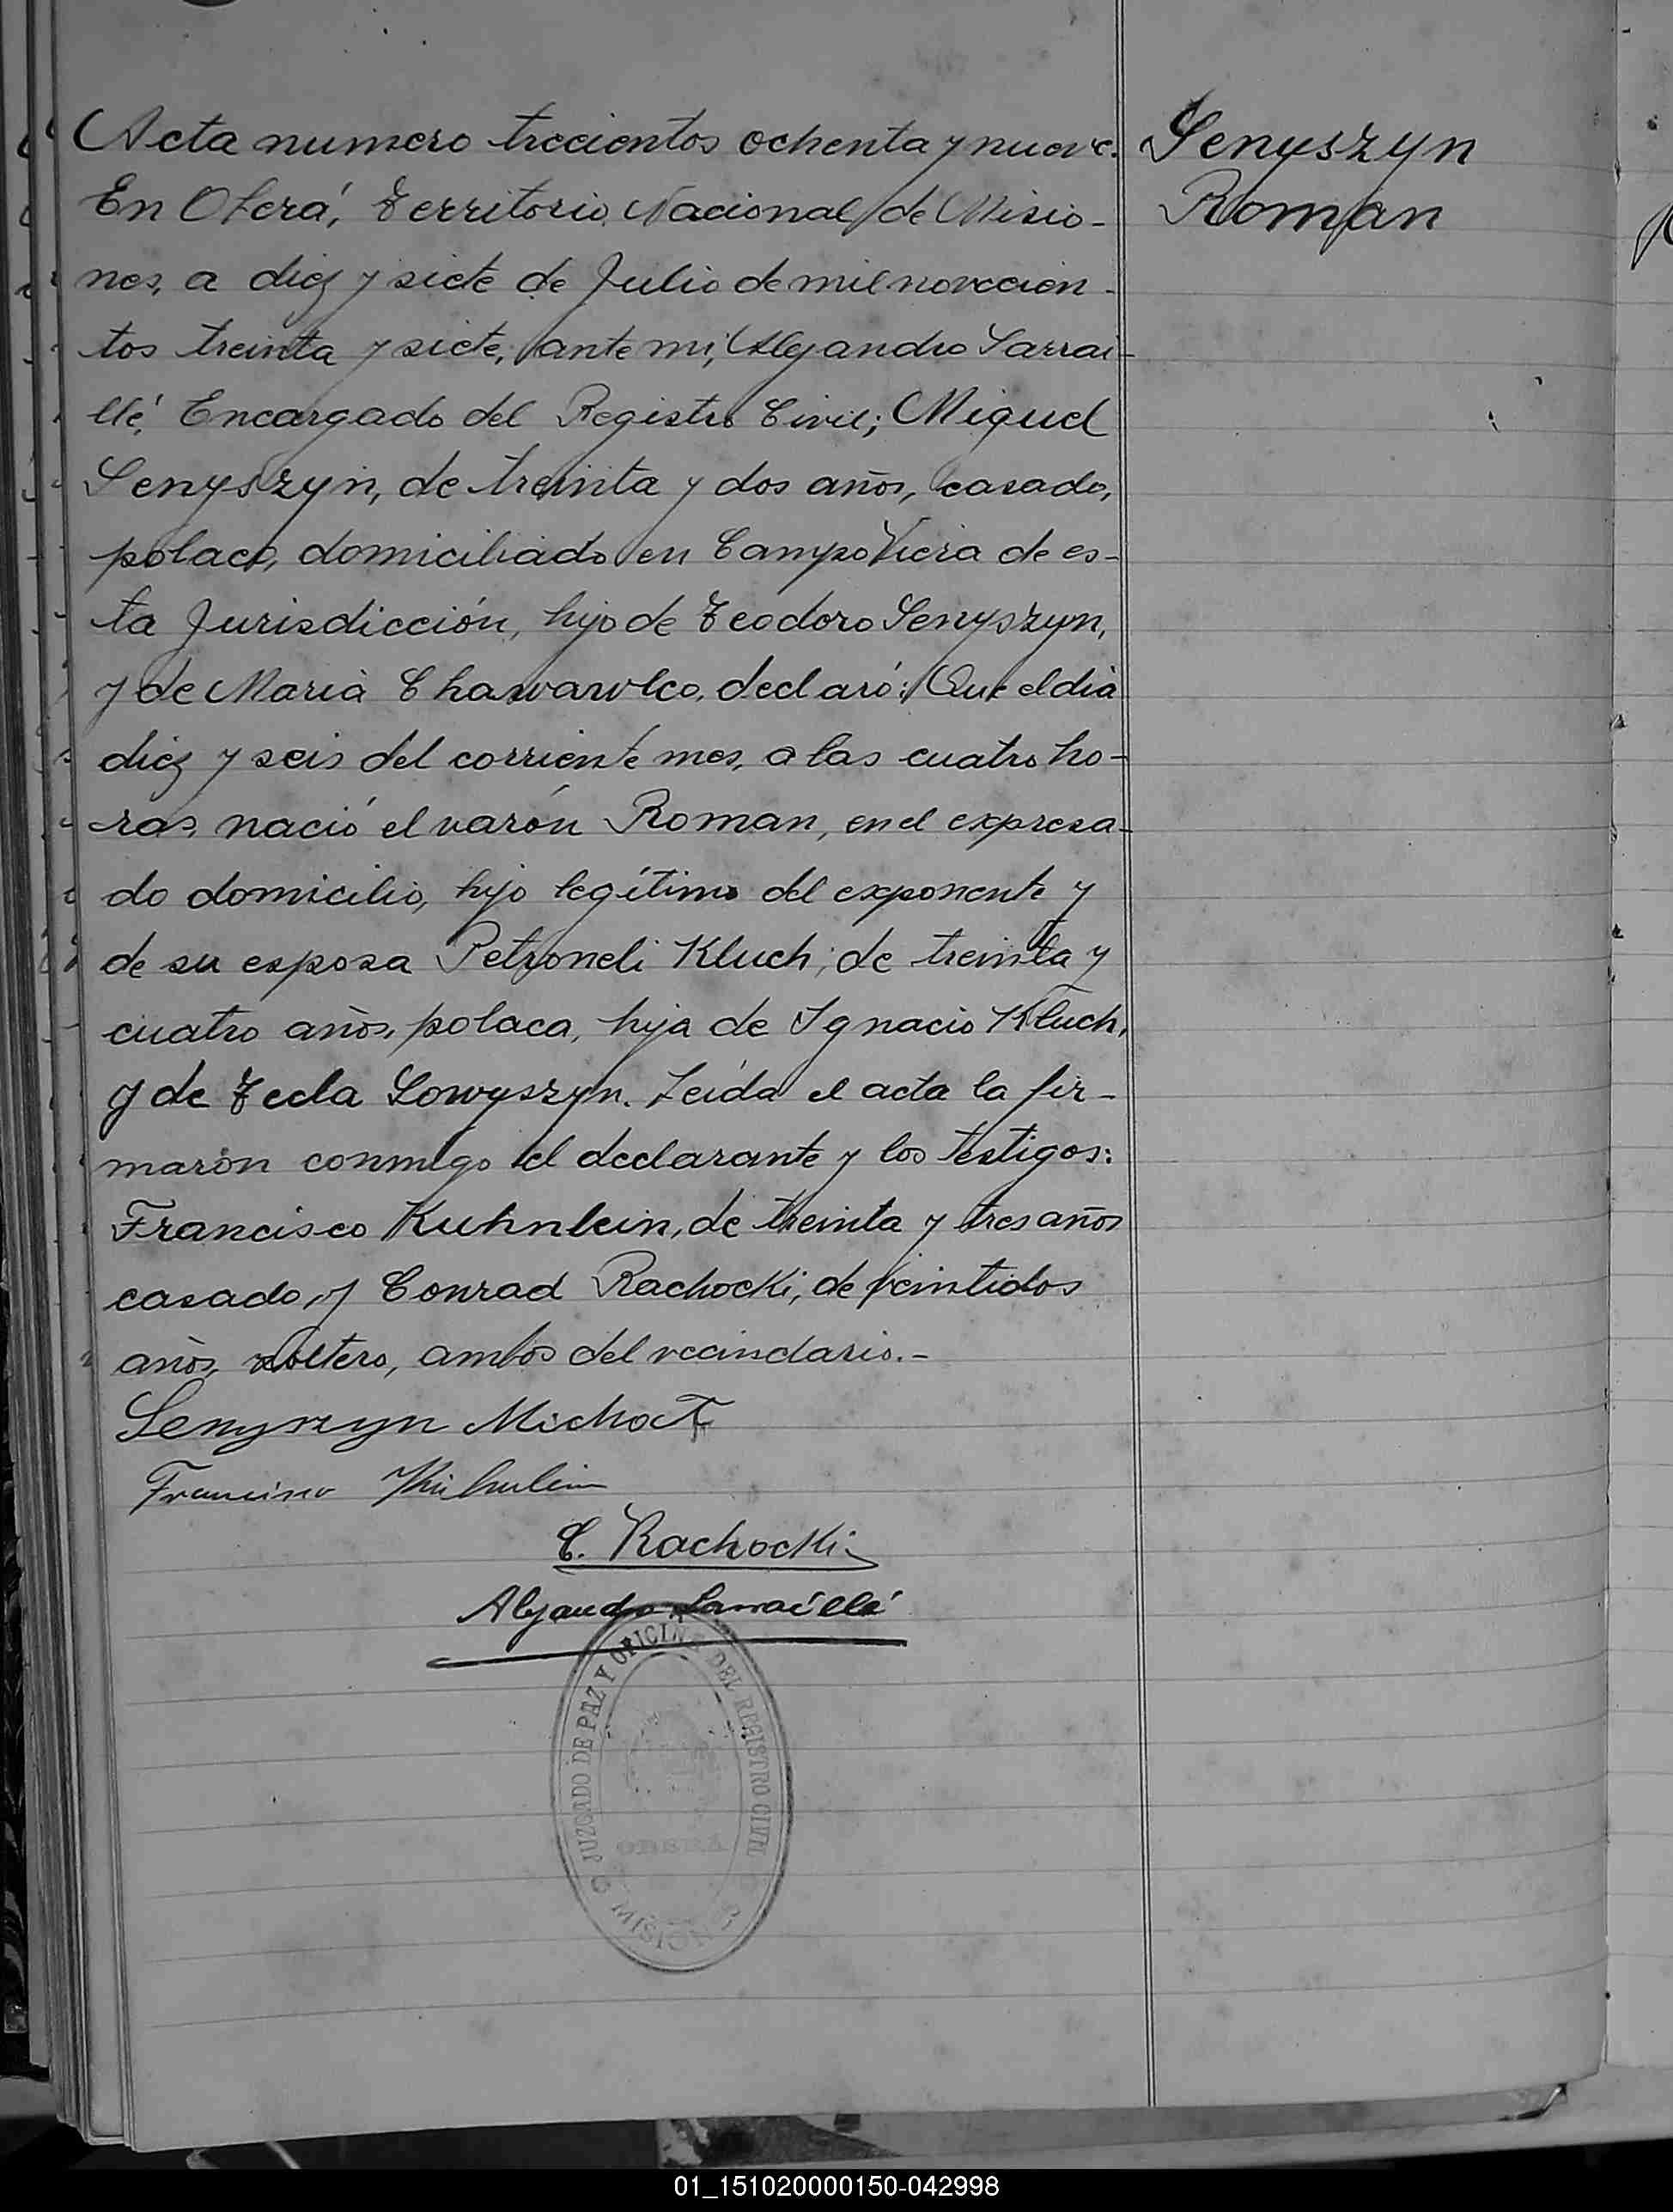 Acta numero trecientos ochenta y nueve.
En Oberá, Territorio Nacional de Misio-
nes, a diez y siete de Julio de mil novecien-
tos treinta y siete, ante mi, Alejandro Sarrai-
llé, Encargado del Registro Civil; Miguel
Senyszyn, de treinta y dos años, casado,
polaco, domiciliado en Campo Viera de es-
ta Jurisdicción, hijo de Teodoro Senyszyn,
y de Maria Chawawlco, declaró: Que el dia
diez y seis del corriente mes, a las cuatro ho-
ras, nació el varón Roman, en el expresa-
do domicilio, hijo legítimo del exponente y
de su esposa Petroneli Kluch, de treinta y
cuatro años, polaca, hija de Ignacio Kluch,
y de Tecla Sowyszyn. Leída el acta la fir-
marón conmigo el declarante y los testigos:
Francisco Kuhnlein, de treinta y tres años
casado, y Conrad Rachocki, de veintidos
años, soltero, ambos del vecindario.-
Senyszyn Michał
Francisco Kühnlein
C. Rachocki
Alejandro Sarraillé
JUZGADO DE PAZ Y OFICINA DEL REGISTRO CIVIL
OBERÁ
MISIONES
Senyszyn
Roman
01_151020000150-042998